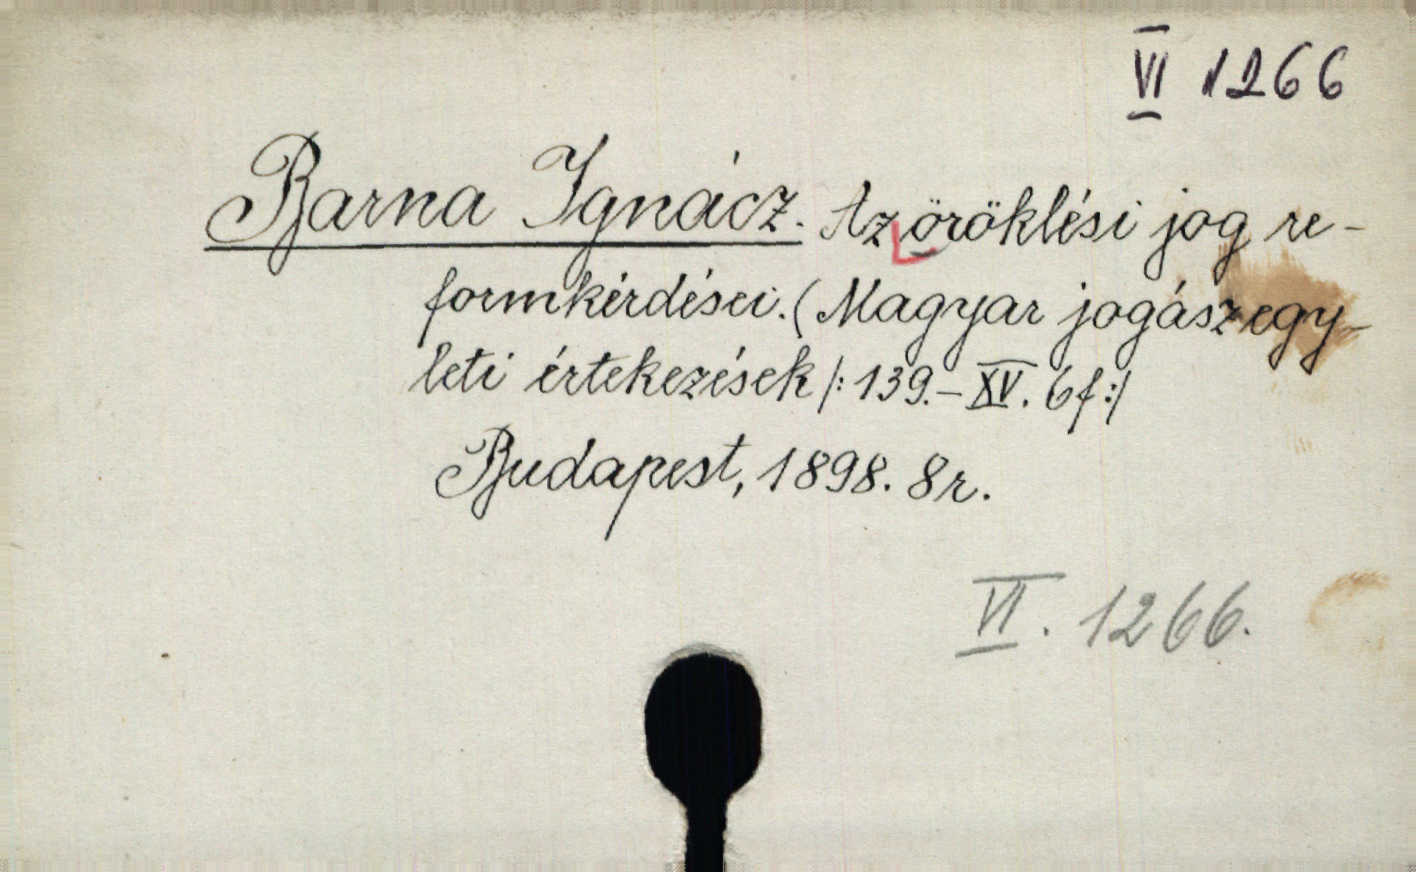 VI 1266
Barna Ignácz. Az öröklési jog re-
formkérdései. (Magyar jogászegy-
leti értekezések /: 139.– XV. 6f :/
Budapest, 1898. 8r.
VI. 1266.